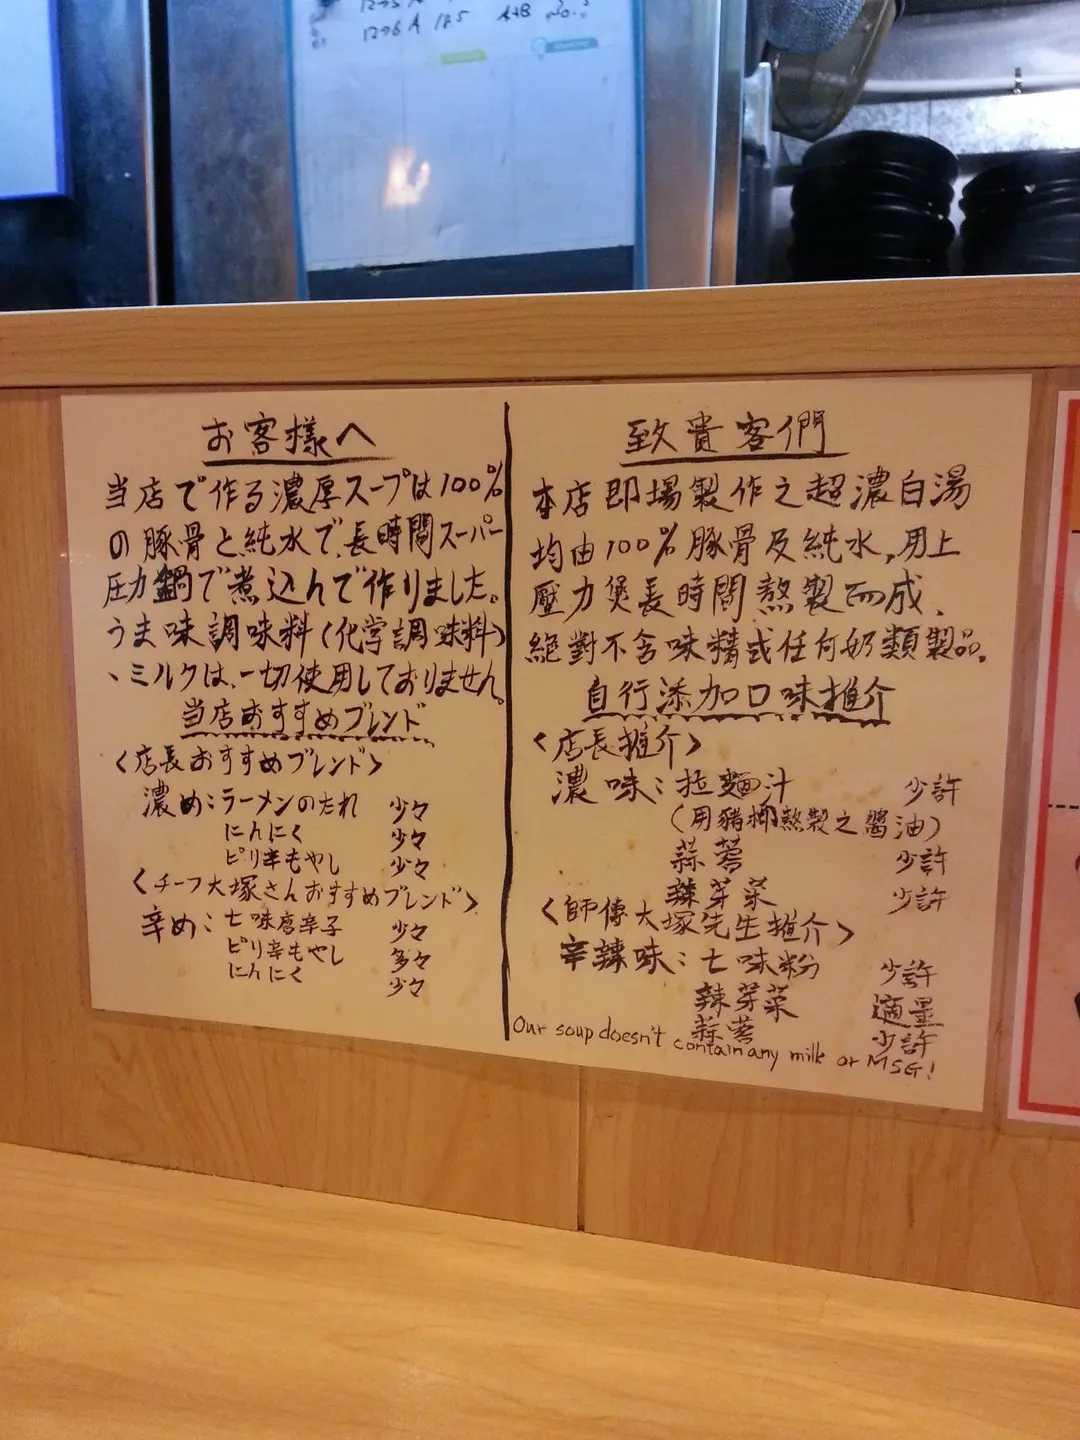 1296A 125 A+B
お客様へ
当店で作る濃厚スープは100%
の豚骨と純水で、長時間スーパー
圧力鍋で煮込んで作りました。
うま味調味料(化学調味料)
、ミルクは、一切使用しておりません。
当店おすすめブレンド
<店長おすすめブレンド>
濃め:ラーメンのたれ 少々
にんにく 少々
ピリ辛もやし 少々
<チーフ大塚さんおすすめブレンド>
辛め:七味唐辛子 少々
ピリ辛もやし 多々
にんにく 少々
致貴客們
本店即場製作之超濃白湯
均由100%豚骨及純水,用上
壓力煲長時間熬製而成、
絕對不含味精或任何奶類製品。
自行添加口味推介
<店長推介>
濃味:拉麵汁 少許
(用豬梛熬製之醬油)
蒜蓉 少許
辣芽菜 少許
<師傅大塚先生推介>
辛辣味:七味粉 少許
辣芽菜 適量
蒜蓉 少許
Our soup doesn't contain any milk or MSG!